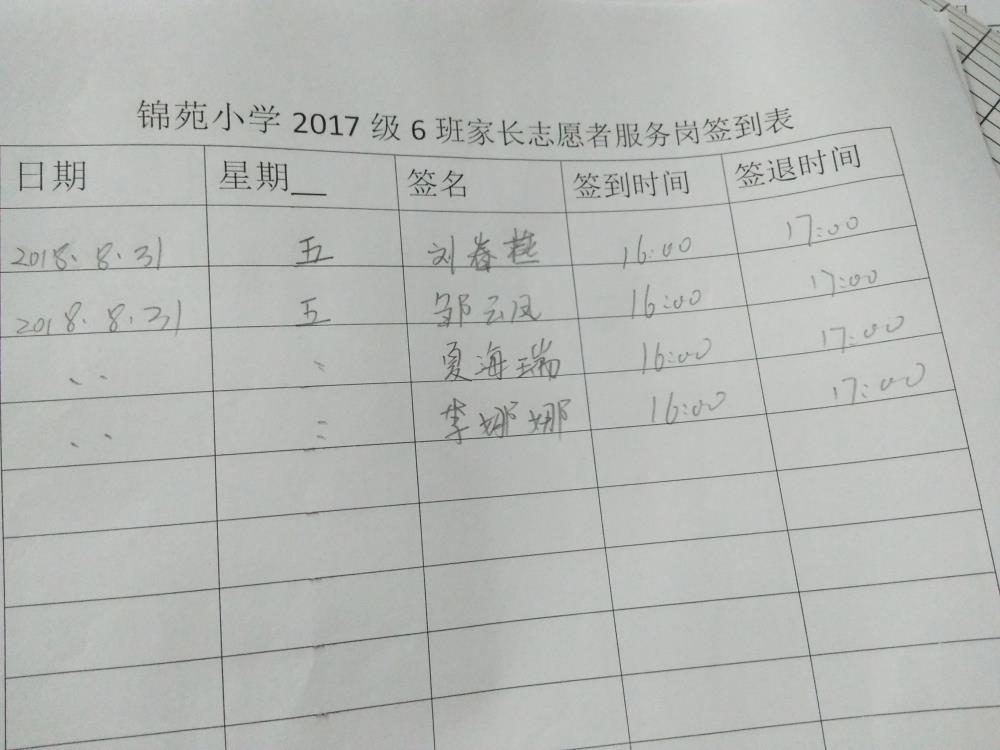 锦苑小学 2017 级 6 班家长志愿者服务岗签到表
日期 星期__ 签名 签到时间 签退时间
2018.8.31 五 刘春燕 16:00 17:00
2018.8.31 五 邹云凤 16:00 17:00
、、 、、 夏海瑞 16:00 17:00
、、 、、 李娜娜 16:00 17:00